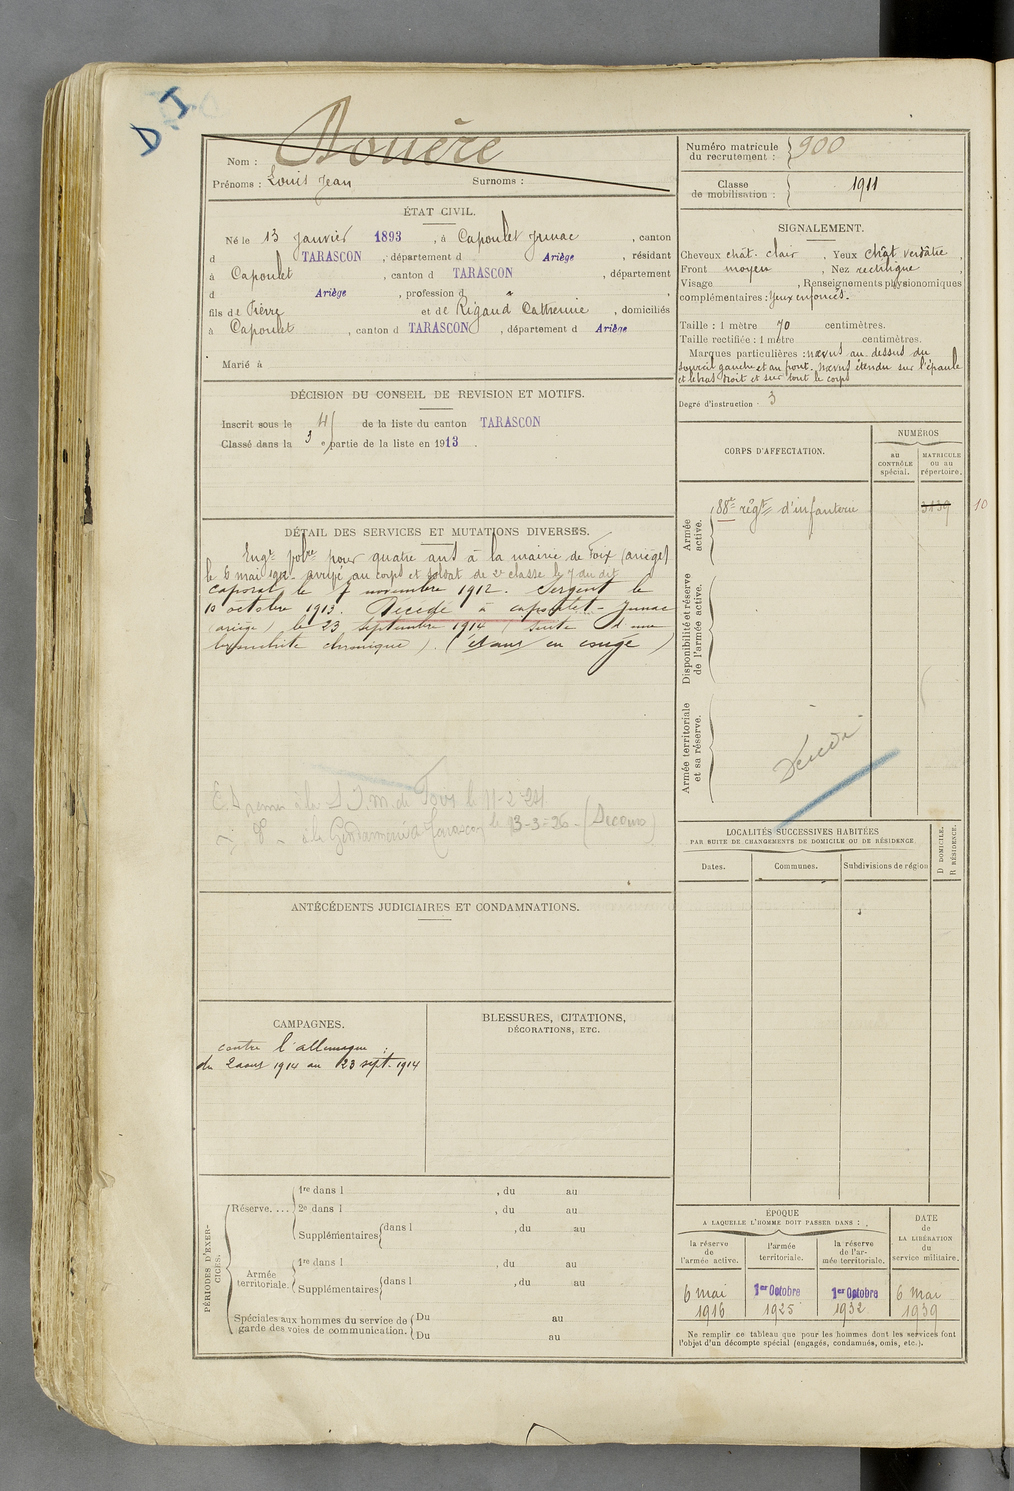 D I
Nom : Rouère
Prénoms : Louis Jean Surnoms :
Numéro matricule du recrutement : 900
Classe de mobilisation : 1911
ÉTAT CIVIL.
Né le 13 Janvier 1893, à Capoulet Junac, canton
d TARASCON, département d Ariège, résidant
à Capoulet, canton d TARASCON, département
d Ariège, profession d
fils de Pierre et de Rigaud Catherine, domiciliés
à Capoulet, canton d TARASCON, département d Ariège
Marié à
DÉCISION DU CONSEIL DE REVISION ET MOTIFS.
Inscrit sous le 4 de la liste du canton TARASCON
Classé dans la 3e partie de la liste en 1913.
DÉTAIL DES SERVICES ET MUTATIONS DIVERSES.
Engé volre pour quatre ans à la mairie de Foix (ariège)
le 6 mai 1912. arrivé au corps et soldat de 2e classe le 7 du dit
Caporal le 7 novembre 1912. Sergent le
10 octobre 1913. Décédé à capoulet-Junac
(ariège) le 23 septembre 1914 (suite d'une
bronchite chronique). (étant en congé)
à la S.I.M. de Foix le 11-2-24
à la Gendarmerie de Tarascon le 13-3-26 - (Secours)
ANTÉCÉDENTS JUDICIAIRES ET CONDAMNATIONS.
CAMPAGNES.
contre l'allemagne :
du 2 aout 1914 au 23 sept. 1914
BLESSURES, CITATIONS,
DÉCORATIONS, ETC.
PÉRIODES D'EXERCICES.
Réserve....
1re dans l , du au
2e dans l , du au
Supplémentaires dans l , du au
Armée territoriale.
1re dans l , du au
Supplémentaires dans l , du au
Spéciales aux hommes du service de garde des voies de communication.
Du au
Du au
SIGNALEMENT.
Cheveux chât. clair, Yeux chât verdâtre,
Front moyen, Nez rectiligne,
Visage , Renseignements physionomiques
complémentaires : Yeux enfoncés.
Taille : 1 mètre 70 centimètres.
Taille rectifiée : 1 mètre centimètres.
Marques particulières : nævus au dessus du
sourcil gauche et au front. nævus étendu sur l'épaule
et le bras droit et sur tout le corps
Degré d'instruction 3
CORPS D'AFFECTATION.
NUMÉROS
AU CONTRÔLE spécial.
MATRICULE ou au répertoire.
Armée active.
88e régt d'infanterie 3139 10
Disponibilité et réserve de l'armée active.
Armée territoriale et sa réserve.
Décédé
LOCALITÉS SUCCESSIVES HABITÉES
PAR SUITE DE CHANGEMENTS DE DOMICILE OU DE RÉSIDENCE.
Dates. Communes. Subdivisions de région D DOMICILE. R RÉSIDENCE.
ÉPOQUE
A LAQUELLE L'HOMME DOIT PASSER DANS :
la réserve de l'armée active.
l'armée territoriale.
la réserve de l'armée territoriale.
DATE de LA LIBÉRATION du service militaire.
6 mai 1916
1er Octobre 1925
1er Octobre 1932
6 Mai 1939
Ne remplir ce tableau que pour les hommes dont les services font
l'objet d'un décompte spécial (engagés, condamnés, omis, etc.).